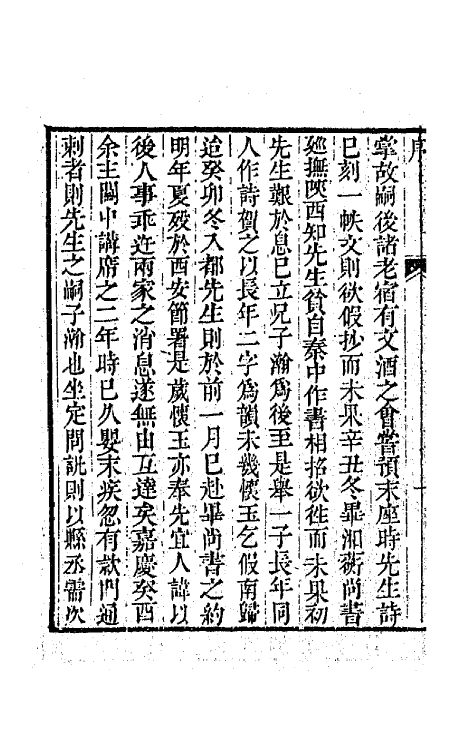 序
掌故嗣後諸老宿有文酒之會嘗預末座時先生詩
已刻一帙文則欲假抄而未果辛丑冬畢湘蘅尚書
廵撫陝西知先生貧自秦中作書相招欲徃而未果初
先生艱於息已立兄子瀚爲後至是舉一子長年同
人作詩賀之以長年二字爲韻未幾懷玉乞假南歸
迨癸卯冬入都先生則於前一月已赴畢尚書之約
明年夏歿於西安節署是歲懷玉亦奉先宜人諱以
後人事乖迕兩家之消息遂無由互達矣嘉慶癸酉
余主關中講席之二年時已久嬰末疾忽有款門通
刺者則先生之嗣子瀚也坐定問訊則以縣丞需次